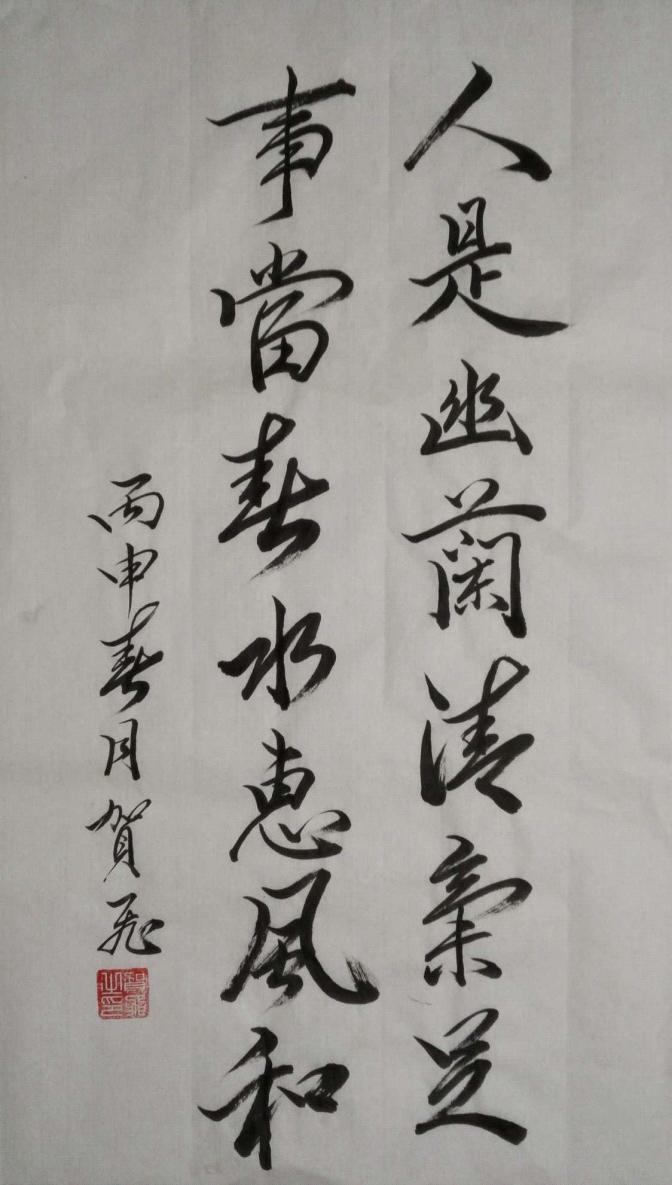 人是幽蘭清氣足
事當春水惠風和
丙申春月賀飛